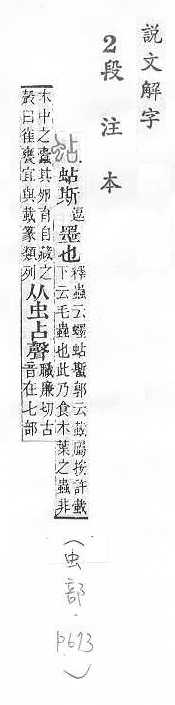 說文解字
2段注本
蛅斯逗墨也釋蟲云蟔蛅蟴郭云蛓屬按許蛓
下云毛蟲也此乃食木葉之蟲非
木中之蠹其卵自自藏之
殼曰雀甕宜與蛓篆類列
从虫占聲職廉切古
音在七部
(虫部.P673)